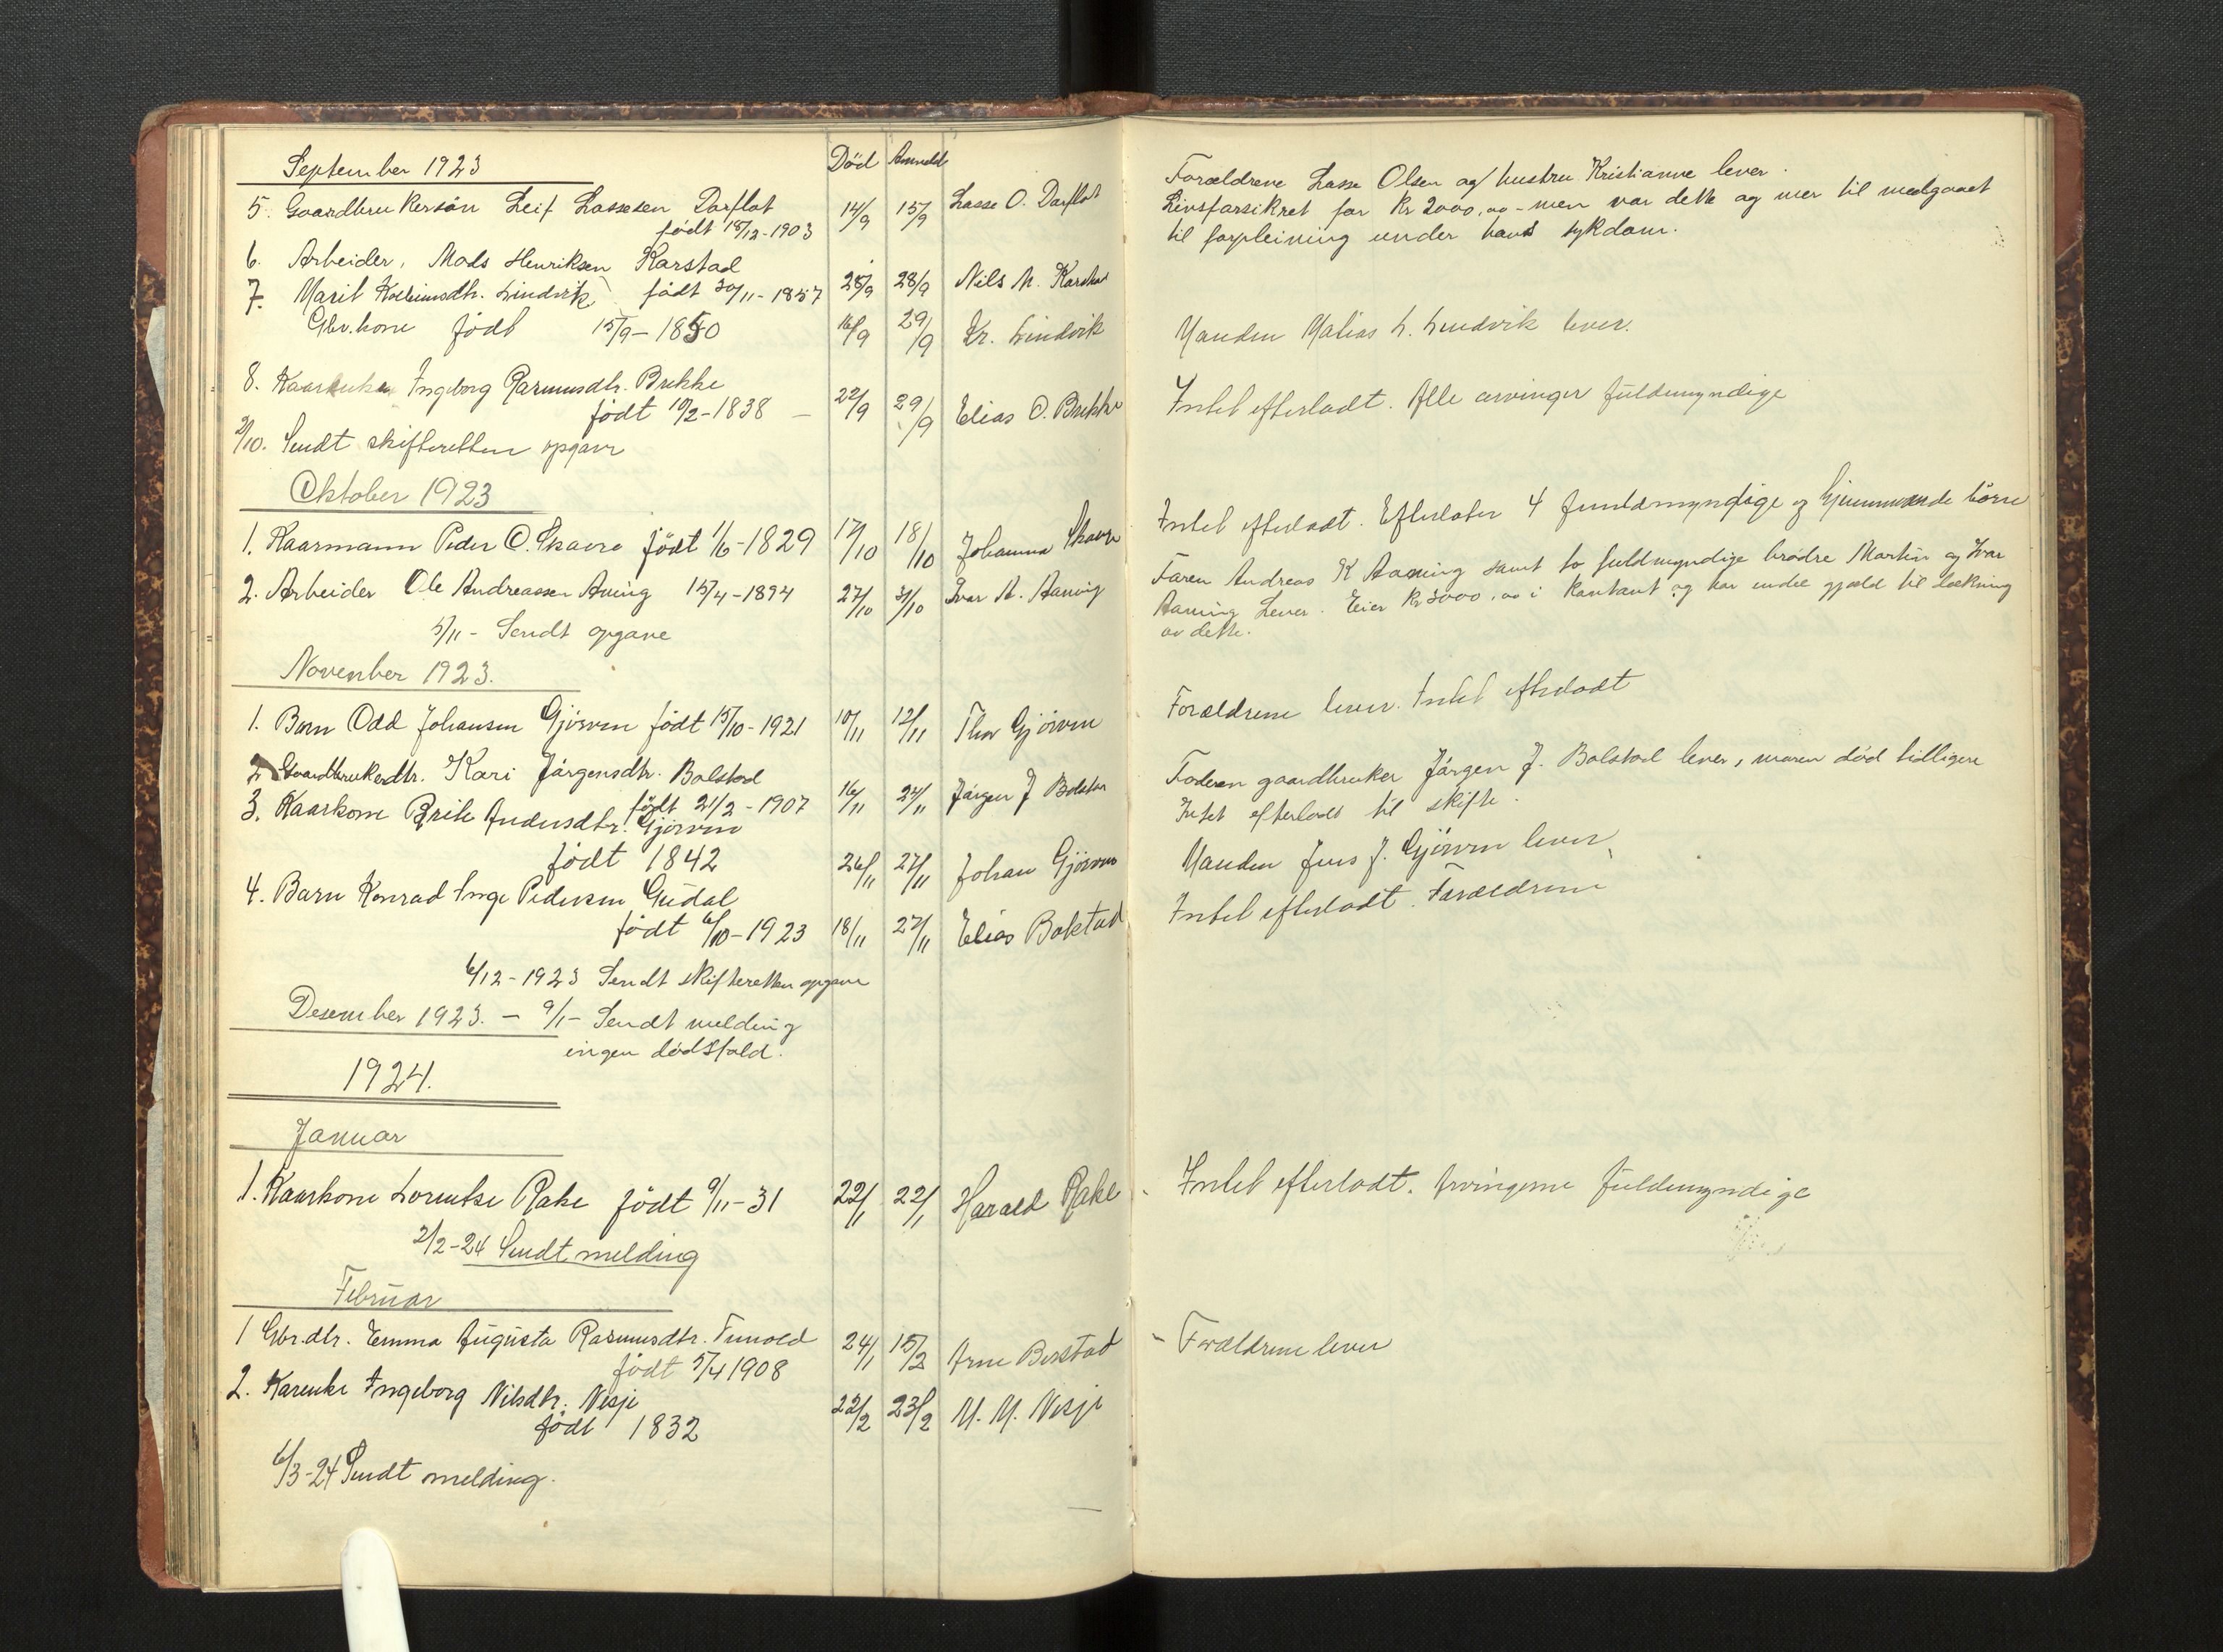 September 1923
Död Anmeldt
5. Gaardbrukersön Leif Lassesen Darflot
født 18/12-1903 14/9 15/9 Lasse O. Darflot
6. Arbeider, Mads Henriksen Karstad
født 30/11-1857 25/9 28/9 Nils M. Karstad
7. Marit Kolbeinsdtr. Lindvik
Gbr.kone født 15/9-1850 16/9 29/9 Kr. Lindvik
8. Kaarenke Ingeborg Rasmusdtr. Brekke
født 10/2-1838 – 22/9 29/9 Elias O. Brekke
2/10. Sendt skifteretten opgave
Oktober 1923
1. Kaarmann Peder O. Skavro født 1/6-1829 17/10 18/10 Johanna
2. Arbeider Ole Andreassen Aning 15/4-1894 27/10 31/10 Ivar A. Aaning
5/11 - Sendt opgave
November 1923.
1. Barn Odd Johansen Gjörven født 15/10-1921 10/11 12/11 Thor Gjörven
2. Gaardbrukerdtr. Kari Jörgensdtr. Bolstad
født 21/2-1907 16/11 24/11 Jörgen J Bolstad
3. Kaarkone Brite Andersdtr. Gjörven
født 1842 26/11 27/11 Johan Gjörven
4. Barn Konrad Inge Pedersen Gudal
født 6/10-1923 18/11 27/11 Elias Bolstad
6/12-1923 Sendt skifteretten opgave
Desember 1923. – 9/1- Sendt melding
ingen dödsfald.
1924.
Januar
1. Kaarkone Lorentse Rake födt 9/11-31 22/1 22/1 Harald Rake
2/2-24 Sendt melding
Februar
1 Gbr.dtr. Emma Augusta Rasmusdtr. Tunold
födt 5/4 1908 24/1 15/2 Arne Berstad
2. Karenke Ingeborg Nilsdtr. Nesje
födt 1832 22/2 23/2 M. M. Nesje
6/3-24 Sendt melding.
Forældrene Lasse Olsen og hustru Kristianne lever.
Livsforsikret for Kr 2000,00 - men var dette og mer til medgaaet
til forpleining under hans sykdom.
Manden Matias L. Lindvik lever.
Intet efterladt. Alle arvinger fuldmyndige
Intet efterladt. Efterlater 4 og börn
Faren Andreas K Aaning samt to fuldmyndige brødre Martin og Ivar
Aaning Lever. Eier Kr 3000,00 i kontant og har endel gjæld til dækning
av dette.
Forældrene lever. Intet efterladt
Faderen gaardbruker Jörgen J. Bolstad lever, moren död tidligere
Intet efterladt til skifte.
Manden Jens J. Gjörven lever
Intet efterladt. Forældrene
Intet efterladt. Arvingerne fuldmyndige
– Forældrene lever